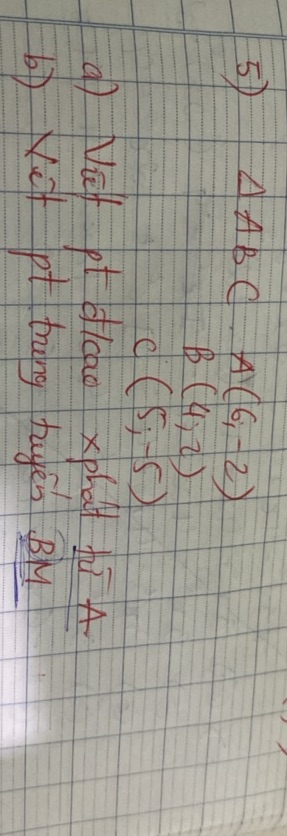 5) Δ ABC A(6,-2)
B(4,2)
C(5,-5)
a) Viết pt đ/cao xphát từ A
b) Viết pt trung tuyến BM